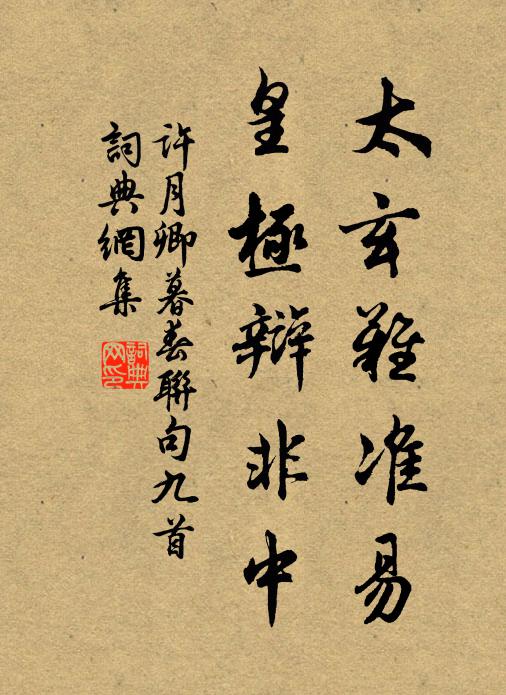 太玄難准易
皇極辯非中
許月卿暮春聯句九首
詞典網集
詞典网印